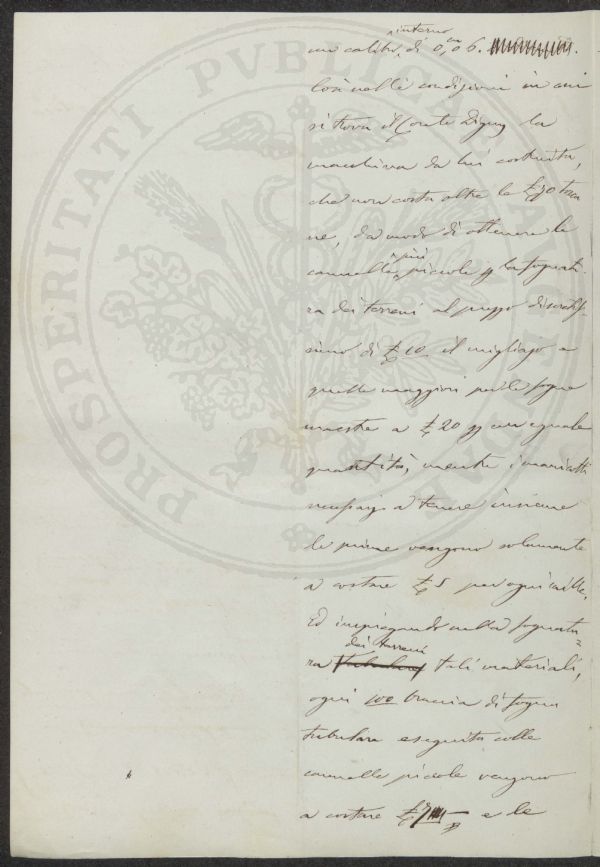 interno
un calibro di 0,m06.
Così nelle condizioni in cui
si trova il Conte Digny la
macchina da lui costruita,
che non costa oltre le £ 70 tosca
ne, dà modo di ottenere le
cannelle più piccole p la fognatu-
ra dei terreni al prezzo discretis-
simo di £ 10 il migliajo e
quelle maggiori per le fogne
maestre a £ 20 p un eguale
quantità, mentre i manicotti
necessarj a tenere insieme
le prime vengono solamente
a costare £ 5 per ogni mille.
Ed impiegando nella fognatu=
dei terreni
ra tali materiali,
ogni 100 braccia di fogna
tubulare eseguita colle
cannelle piccole vengono
a costare £ 7 e le
PROSPERITATI PVBLICAE AVGENDAE